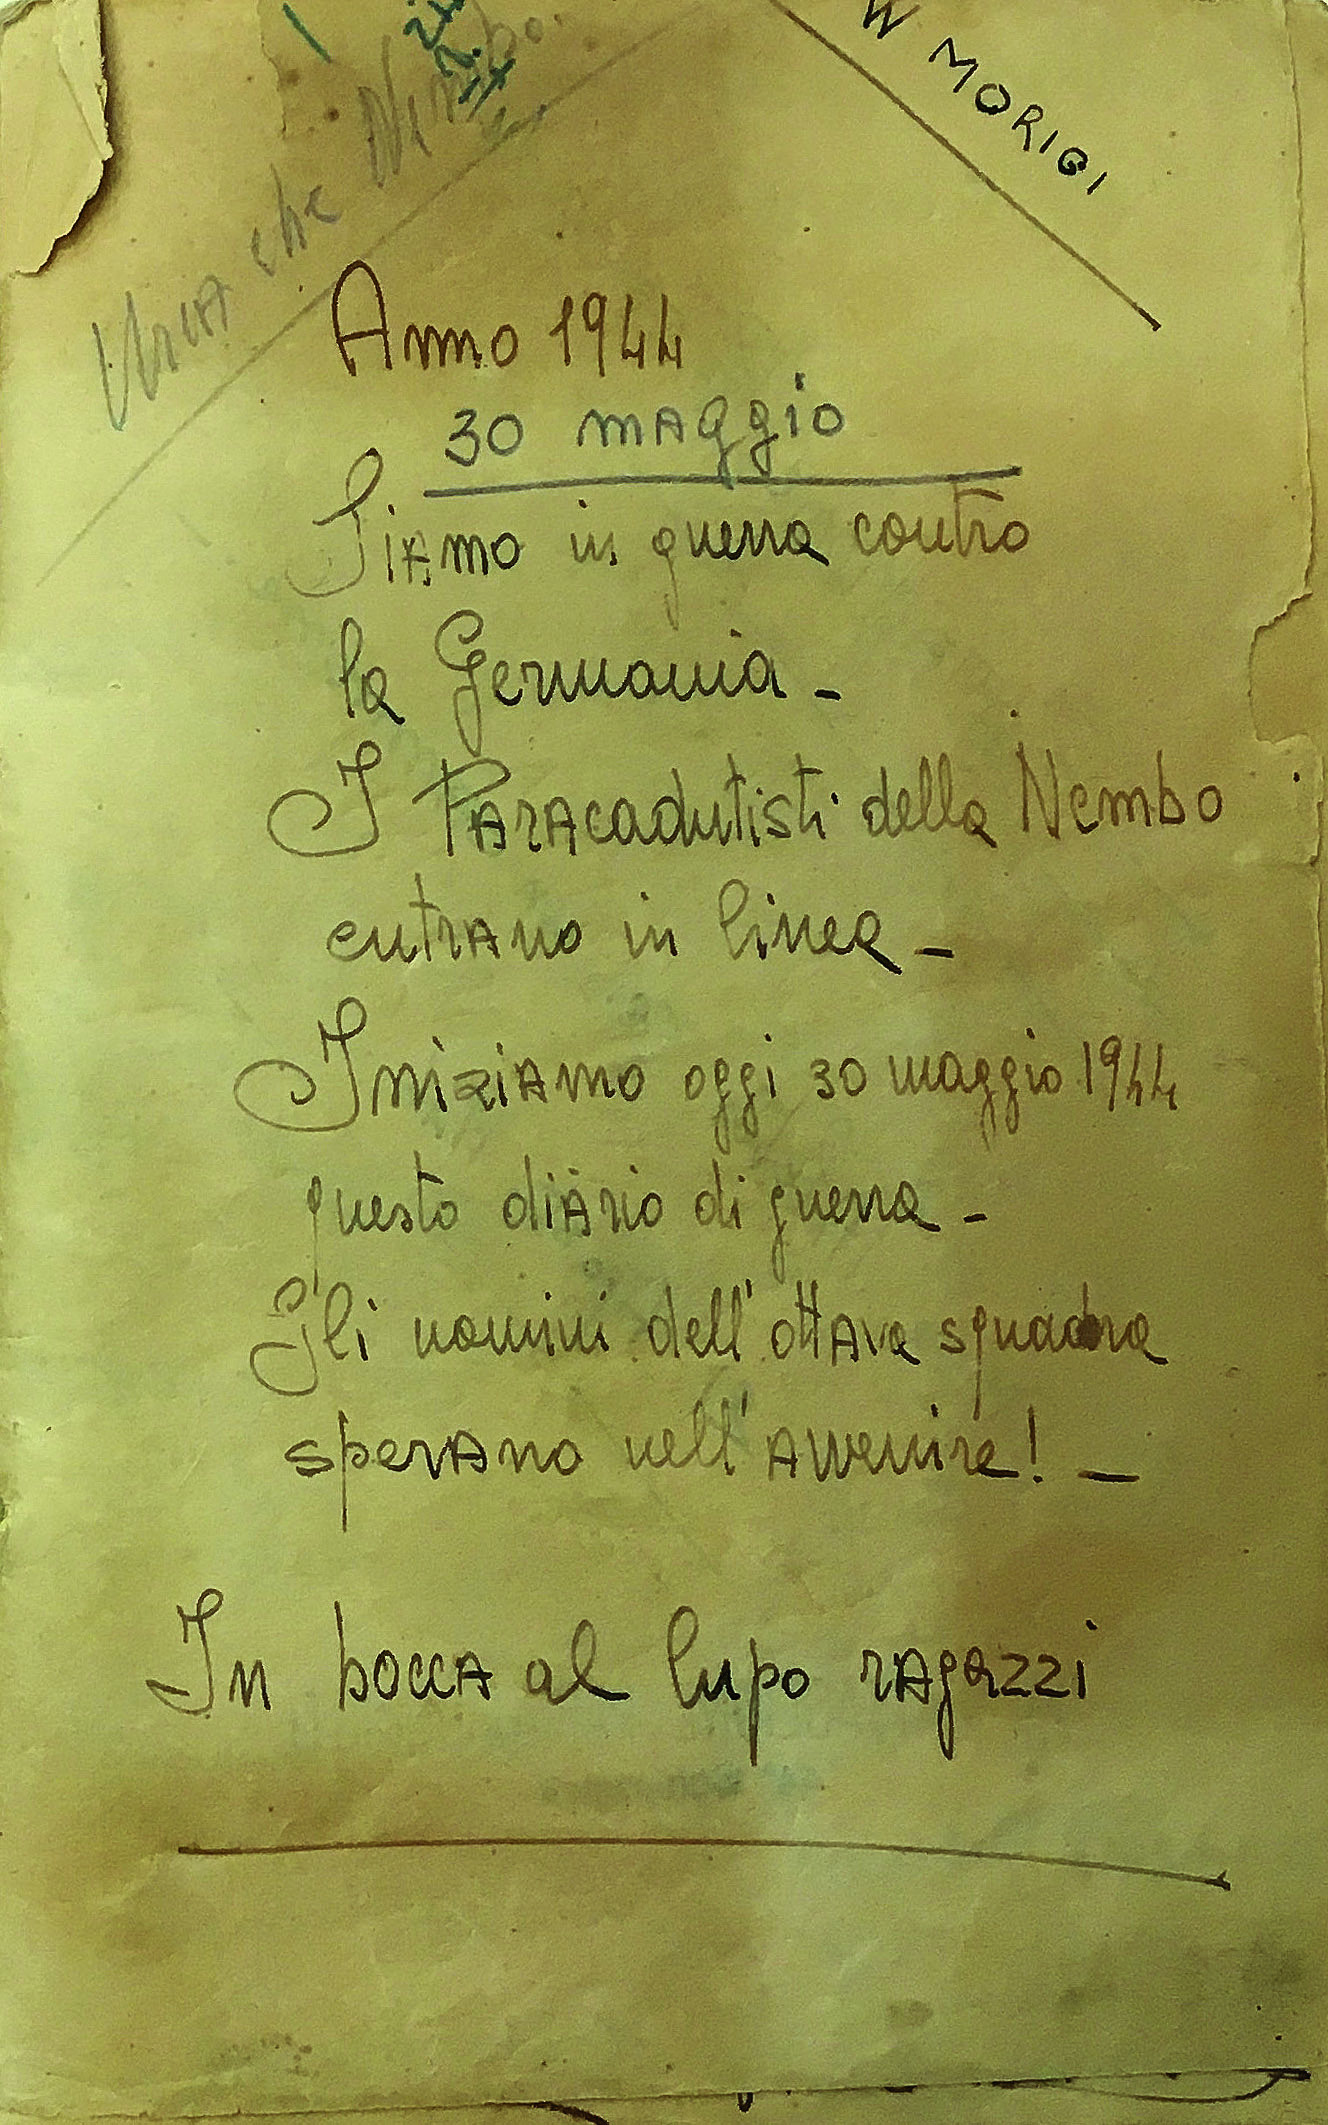 Urca che Nembo.
W MORIGI
Anno 1944
30 maggio
Siamo in guerra contro
la Germania -
I Paracadutisti della Nembo
entrano in linea -
Iniziamo oggi 30 maggio 1944
questo diario di guerra -
Gli uomini dell'ottava squadra
sperano nell'avvenire! -
In bocca al lupo ragazzi